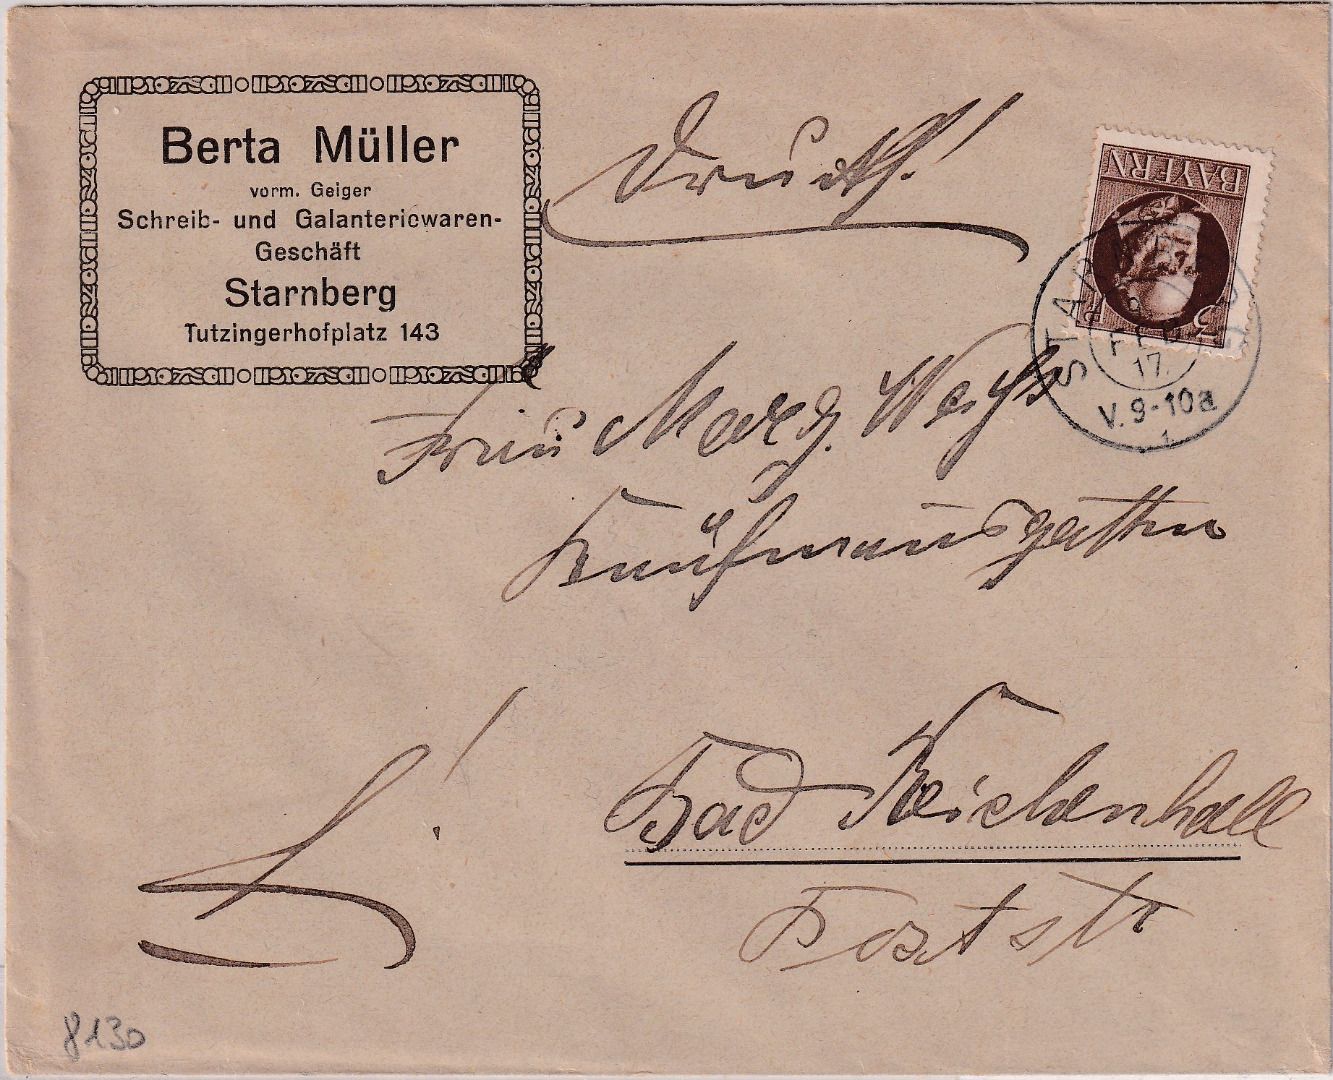 Berta Müller
vorm. Geiger
Schreib- und Galanteriewaren-
Geschäft
Starnberg
Tutzingerhofplatz 143
Drucks.!
BAYERN
3
STARNBERG
FEB
17.
V. 9-10a
1
Frau Marg. Weiß
Kaufmannsgattin
Bad Reichenhall
Poststr
8130